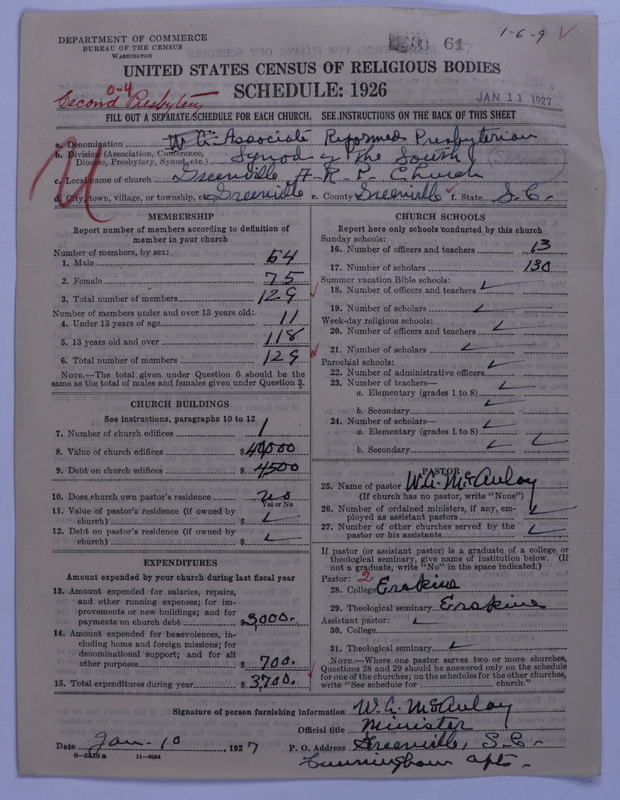 1-6-9 V
DEPARTMENT OF COMMERCE
BUREAU OF THE CENSUS
WASHINGTON
61
UNITED STATES CENSUS OF RELIGIOUS BODIES
SCHEDULE: 1926
JAN 11 1927
0-4
Second Presbytery
FILL OUT A SEPARATE SCHEDULE FOR EACH CHURCH. SEE INSTRUCTIONS ON THE BACK OF THIS SHEET
a. Denomination Associate Reformed Presbyterian
b. Division (Association, Conference, Diocese, Presbytery, Synod, etc.) Synod of the South
c. Local name of church Greenville A. R. P. Church
d. City, town, village, or township, etc. Greenville e. County Greenville f. State S. C.
MEMBERSHIP
Report number of members according to definition of
member in your church
Number of members, by sex:
1. Male 54
2. Female 75
3. Total number of members 129
Number of members under and over 13 years old:
4. Under 13 years of age 11
5. 13 years old and over 118
6. Total number of members 129
NOTE.—The total given under Question 6 should be
same as the total of males and females given under Question 3.
CHURCH BUILDINGS
See instructions, paragraphs 10 to 12
7. Number of church edifices 1
8. Value of church edifices $40,000
9. Debt on church edifices $4500
10. Does church own pastor's residence no
Yes or No
11. Value of pastor's residence (if owned by
church) $
12. Debt on pastor's residence (if owned by
church) $
EXPENDITURES
Amount expended by your church during last fiscal year
13. Amount expended for salaries, repairs,
and other running expenses; for im-
provements or new buildings; and for
payments on church debt $3,000.
14. Amount expended for benevolences, in-
cluding home and foreign missions; for
denominational support; and for all
other purposes $700.
15. Total expenditures during year $3,700.
CHURCH SCHOOLS
Report here only schools conducted by this church
Sunday schools:
16. Number of officers and teachers 13
17. Number of scholars 130
Summer vacation Bible schools:
18. Number of officers and teachers
19. Number of scholars
Week-day religious schools:
20. Number of officers and teachers
21. Number of scholars
Parochial schools:
22. Number of administrative officers
23. Number of teachers—
a. Elementary (grades 1 to 8)
b. Secondary
24. Number of scholars—
a. Elementary (grades 1 to 8)
b. Secondary
PASTOR
25. Name of pastor W. A. McAulay
(If church has no pastor, write "None")
26. Number of ordained ministers, if any, em-
ployed as assistant pastors
27. Number of other churches served by the
pastor or his assistants
If pastor (or assistant pastor) is a graduate of a college or
theological seminary, give name of institution below. (If
not a graduate, write "No" in the space indicated.)
Pastor: 2
28. College Erskine
29. Theological seminary Erskine
Assistant pastor:
30. College
31. Theological seminary
NOTE.—Where one pastor serves two or more churches,
Questions 28 and 29 should be answered only on the schedule
for one of the churches; on the schedules for the other churches,
write "See schedule for church."
Signature of person furnishing information W. A. McAulay
Official title Minister
Date Jan. 10, 1927 P. O. Address Greenville, S. C.
Cunningham Apts.
11—9024